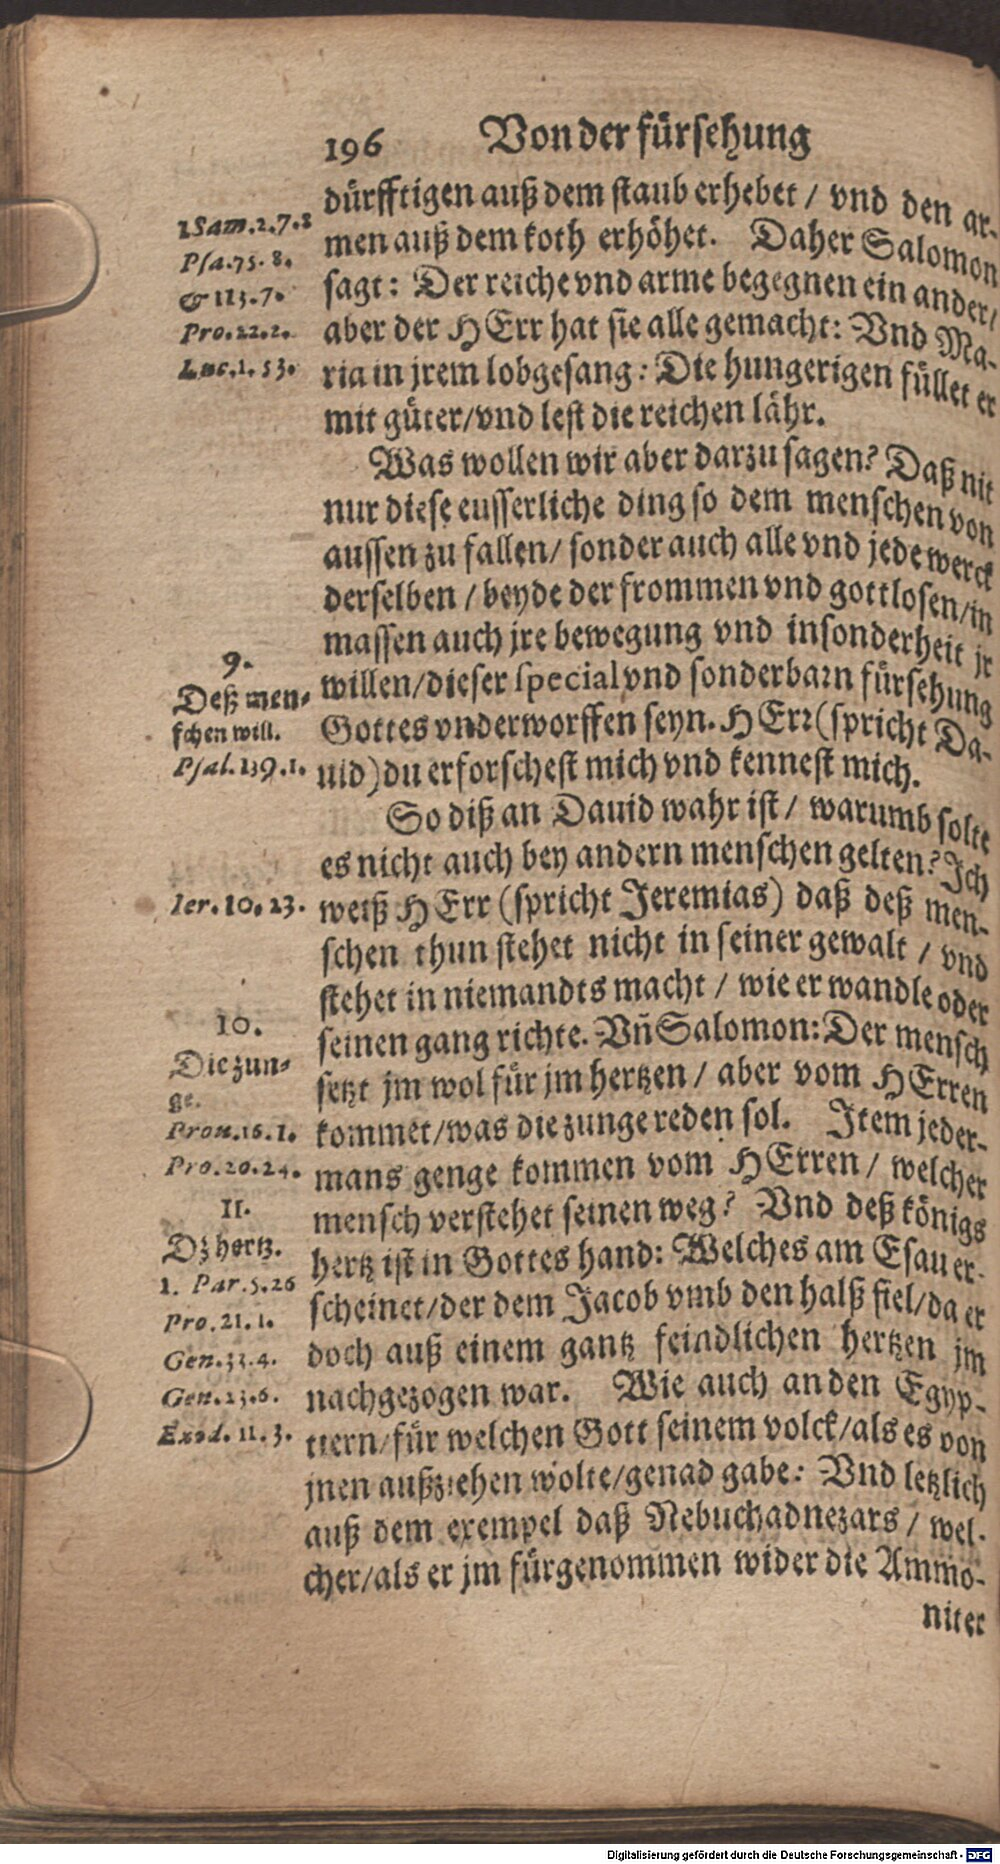 196 Von der fürsehung
dürfftigen auß dem staub erhebet / vnd den ar-
men auß dem koth erhöhet. Daher Salomon
sagt: Der reiche vnd arme begegnen ein ander/
aber der HErr hat sie alle gemacht: Vnd Ma-
ria in jrem lobgesang: Die hungerigen füllet er
mit güter/vnd lest die reichen lähr.
1 Sam. 2. 7. 8
Psa. 75. 8.
& 113. 7.
Pro. 22. 2.
Luc. 1. 53.
Was wollen wir aber darzu sagen? Daß nit
nur diese eusserliche ding so dem menschen von
aussen zu fallen/ sonder auch alle vnd jede werck
derselben / beyde der frommen vnd gottlosen/in
massen auch jre bewegung vnd insonderheit jr
willen/dieser special vnd sonderbarn fürsehung
Gottes vnderworffen seyn. HErr (spricht Da-
uid) du erforschest mich vnd kennest mich.
9.
Deß men-
schen will.
Psal. 139. 1.
So diß an Dauid wahr ist / warumb solte
es nicht auch bey andern menschen gelten? Ich
weiß HErr (spricht Jeremias) daß deß men-
schen thun stehet nicht in seiner gewalt / vnd
stehet in niemandts macht / wie er wandle oder
seinen gang richte. Vñ Salomon: Der mensch
setzt jm wol für jm hertzen / aber vom HErren
kommet/was die zunge reden sol. Item jeder-
mans genge kommen vom HErren / welcher
mensch verstehet seinen weg? Vnd deß königs
hertz ist in Gottes hand: Welches am Esau er-
scheinet/der dem Jacob vmb den halß fiel/da er
doch auß einem gantz feindlichen hertzen jm
nachgezogen war. Wie auch an den Egyp-
tiern/für welchen Gott seinem volck/als es von
jnen außziehen wolte/genad gabe: Vnd letzlich
auß dem exempel daß Nebuchadnezars / wel-
cher/als er jm fürgenommen wider die Ammo-
niter
Ier. 10. 23.
10.
Die zun-
ge.
Prou. 16. 1.
Pro. 20. 24.
11.
Dz hertz.
1. Par. 5. 26
Pro. 21. 1.
Gen. 33. 4.
Gen. 23. 6.
Exod. 11. 3.
Digitalisierung gefördert durch die Deutsche Forschungsgemeinschaft - DFG